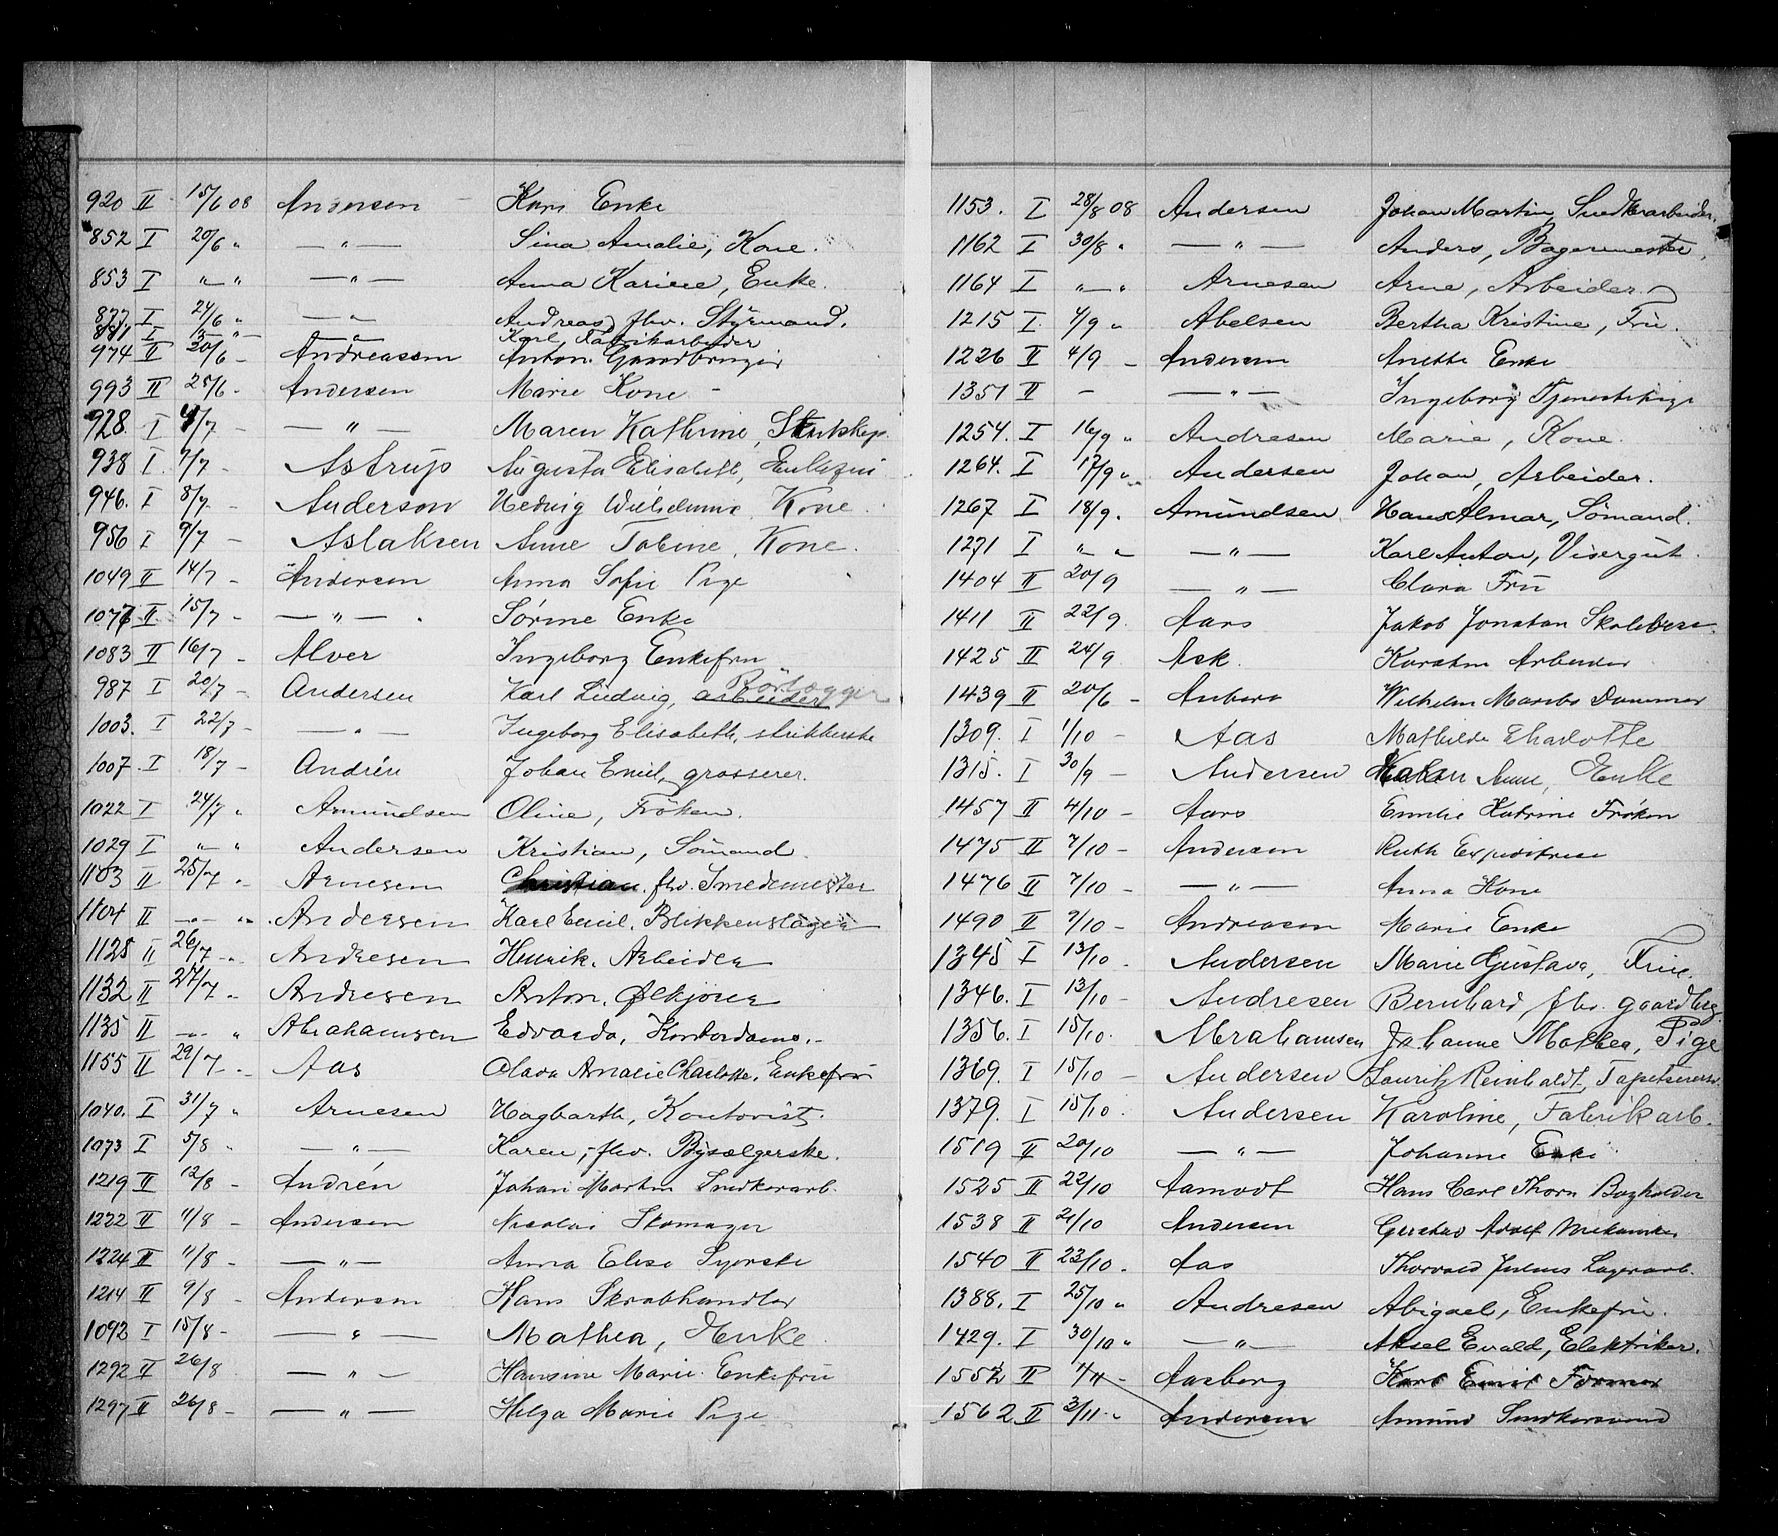 920 II 15/6 08 Andersen Kari Enke
852 I 20/6 „ — „ — Sina Amalie, Kone.
853 I „ „ — „ — Anna Karine, Enke.
877 I 24/6 „ — „ — Andreas, fhv. Styrmand.
881 I — „ — Karl, Fabrikarbeider
974 II 20/6 - Andreassen Anton
993 II 25/6 - Andersen Marie Kone -
928. I 4/7 - — „ — Maren Kathrine,
938 I. 7/7 - Astrup Augusta Elisabeth, Enkefru
946. I 8/7 - Anderson Hedvig Wilhelmine, Kone.
956 I 9/7 - Aslaksen Anne Tobine, Kone.
1049 II 14/7 - Andersen Anna Sofie Pige
1077 II 15/7 - — „ — Sørine Enke
1083 II 16/7 - Alver Ingeborg Enkefru
987 I 20/7 - Andersen Karl Ludvig, arbeider Rörlægger
1003. I 22/7 - — „ — Ingeborg Elisabeth, strikkerske
1007. I 18/7 - Andrén Johan Emil, grosserer.
1022 I 24/7 „ Amundsen Oline, Fröken.
1029 I „ „ Andersen Kristian, Sömand.
1103 II 25/7 „ Arnesen Christian. fhv. Smedemester
1104 II — „ Andersen Karl Emil. Blikkenslager
1125 II 26/7 - Andresen Henrik. Arbeider
1132 II 27/7 „ Andresen Anton. Ølkjører
1135 II — „ Abrahamsen Edvarda, Kontordame.
1155 II 29/7 - Aas Olava Amalie Charlotte. Enkefru
1040. I 31/7 „ Arnesen Hagbarth, Kontorist.
1073 I 5/8 „ — „ — Karen, fhv. Bysælgerske.
1219 II 12/8 - Andrén Johan Martin Snedkerarb.
1222 II 11/8 - Andersen Nicolai Skomager
1224 II 11/8 - — „ — Anna Elise Syerske
1214 II 9/8 - Andersen Hans Skrabhandler
1092 I 15/8 - — „ — Mathea, Enke.
1292 II 26/8 — „ — Hansine Marie. Enkefru
1297 II 26/8 - — „ — Helga Marie Pige
1153. I 28/8 08 Andersen Johan Martin, Snedkerarbeider.
1162 I 30/8 „ — „ — Anders, Bagermester.
1164 I „ „ Arnesen Arne, Arbeider.
1215 I. 4/9 „ Abelsen Bertha Kristine, Fru.
1226 II 4/9 - Andersen Anette Enke
1351 II - — „ — Ingeborg Tjenestepige
1254. I 16/9 „ Andresen Marie, Kone.
1264. I 17/9 „ Andersen Johan, Arbeider.
1267 I 18/9. Amundsen Hans Almar, Sömand.
1271 I „ „ — „ — Karl Anton, Visergut.
1404 II 20/9 — „ — Clara Fru
1411 II 22/9. Aars Jakob Jonatan Skolebest.
1425 II 24/9 Ask. Karsten Arbeider
1439 II 20/6 - Wilhelm
1309. I 1/10 - Aas Mathilde Charlotte
1315. I 30/9 - Andersen Maren Anne, Enke
1457 II 4/10 - Aars Emilie Katrine Frøken
1475 II 7/10 - Andersen Ruth Expeditrice
1476 II 7/10 - — „ — Anna Kone
1490 II 9/10 - Andreasen Marie Enke
1345 I 13/10 . Andersen Marie Gustava, Frue.
1346. I 13/10 - Andresen Bernhard, fhv. gaardbrg.
1356. I 15/10. Abrahamsen Johanne Mathea, Pige
1369. I 15/10 - Andersen Lauritz Reinholdt, Tapetserersv.
1379. I 15/10. Andersen Karoline, Fabrikarb.
1519 II 20/10 — „ — Johanne Enke
1525 II 22/10 Aamodt Hans Carl Thorn Bogholder
1538 II 21/10 Andersen Adolf Mekaniker
1540 II 23/10. Aas Thorvald Julius Lagerarb.
1388. I 25/10 „ Andresen Abigael, Enkefru.
1429. I 30/10 „ — „ — Aksel Evald, Elektriker.
1552 II 4/11 - Aasberg Karl Emil Former
1562 II 3/11 - Andersen Amund Snedkersvend